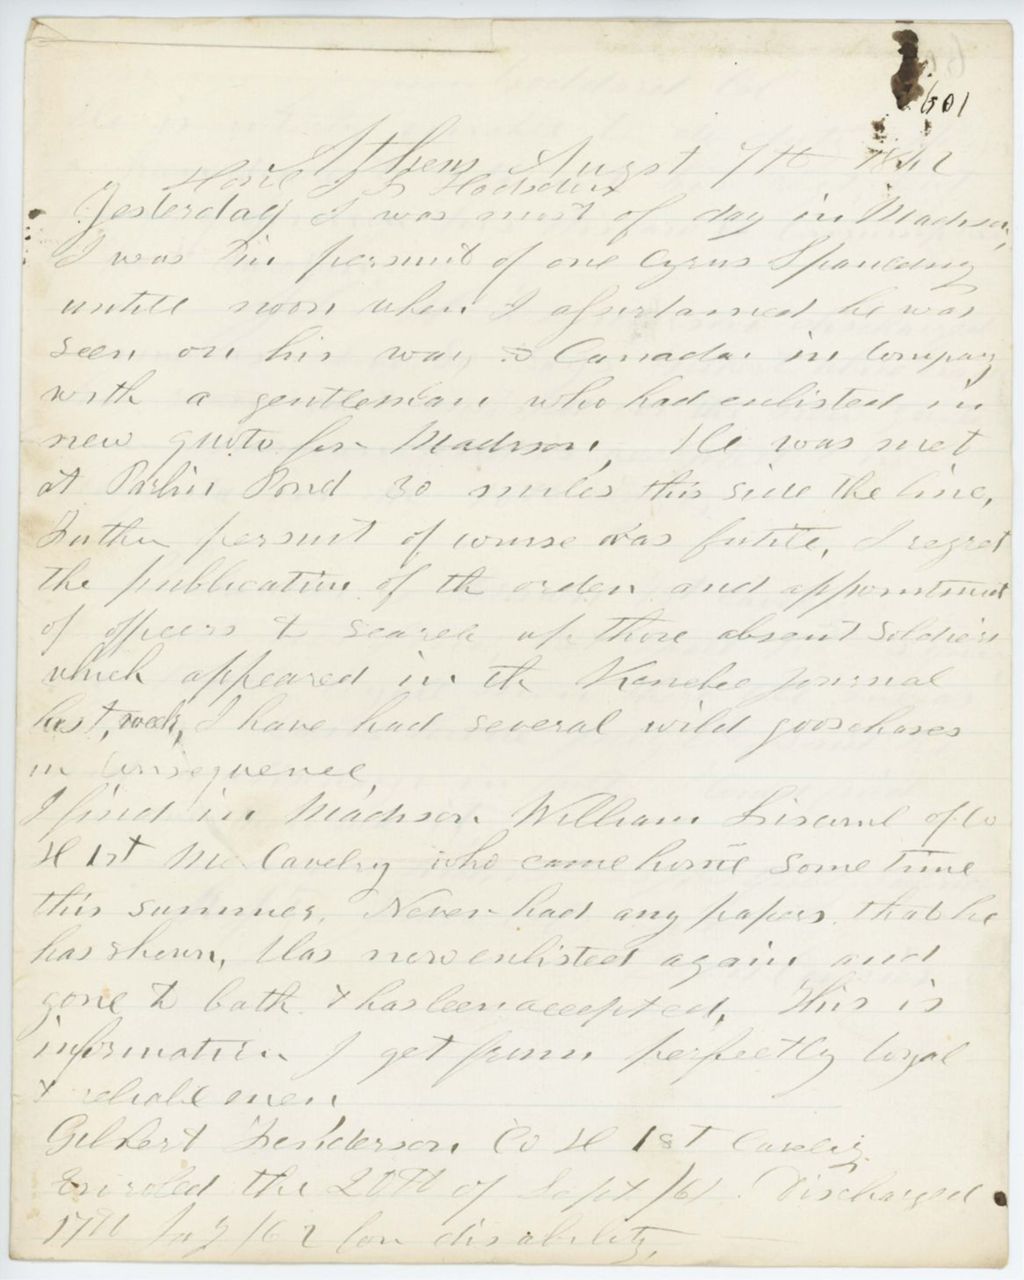 601
Athens August 7th 1862
Hon J L Hodsdon
Yesterday I was most of day in Madison,
I was in persuit of one Cyrus Spaulding
untill noon when I assertained he was
seen on his way to Canada in Company
with a gentleman who had enlisted in
new quoto for Madison, He was met
at Parlin Pond 30 miles this side the line,
Further persuit of course was futile, I regret
the publication of the orders and appointment
of officers to search up those absent soldiers
which appeared in the Kenebec Journal
last, week, I have had several wild goosechases
in Consequence
I find in Madison William of Co
H 1st Me Cavelry who came home some time
this summer. Never had any papers that he
has shown, Has now enlisted again and
gone to bath & has been accepted, This is
information I get from perfectly loyal
& reliable men
Gilbert Henderson Co H 1st Cavelry
Enroled the 20th of Sept /61. Discharged
17th /62 for disability,